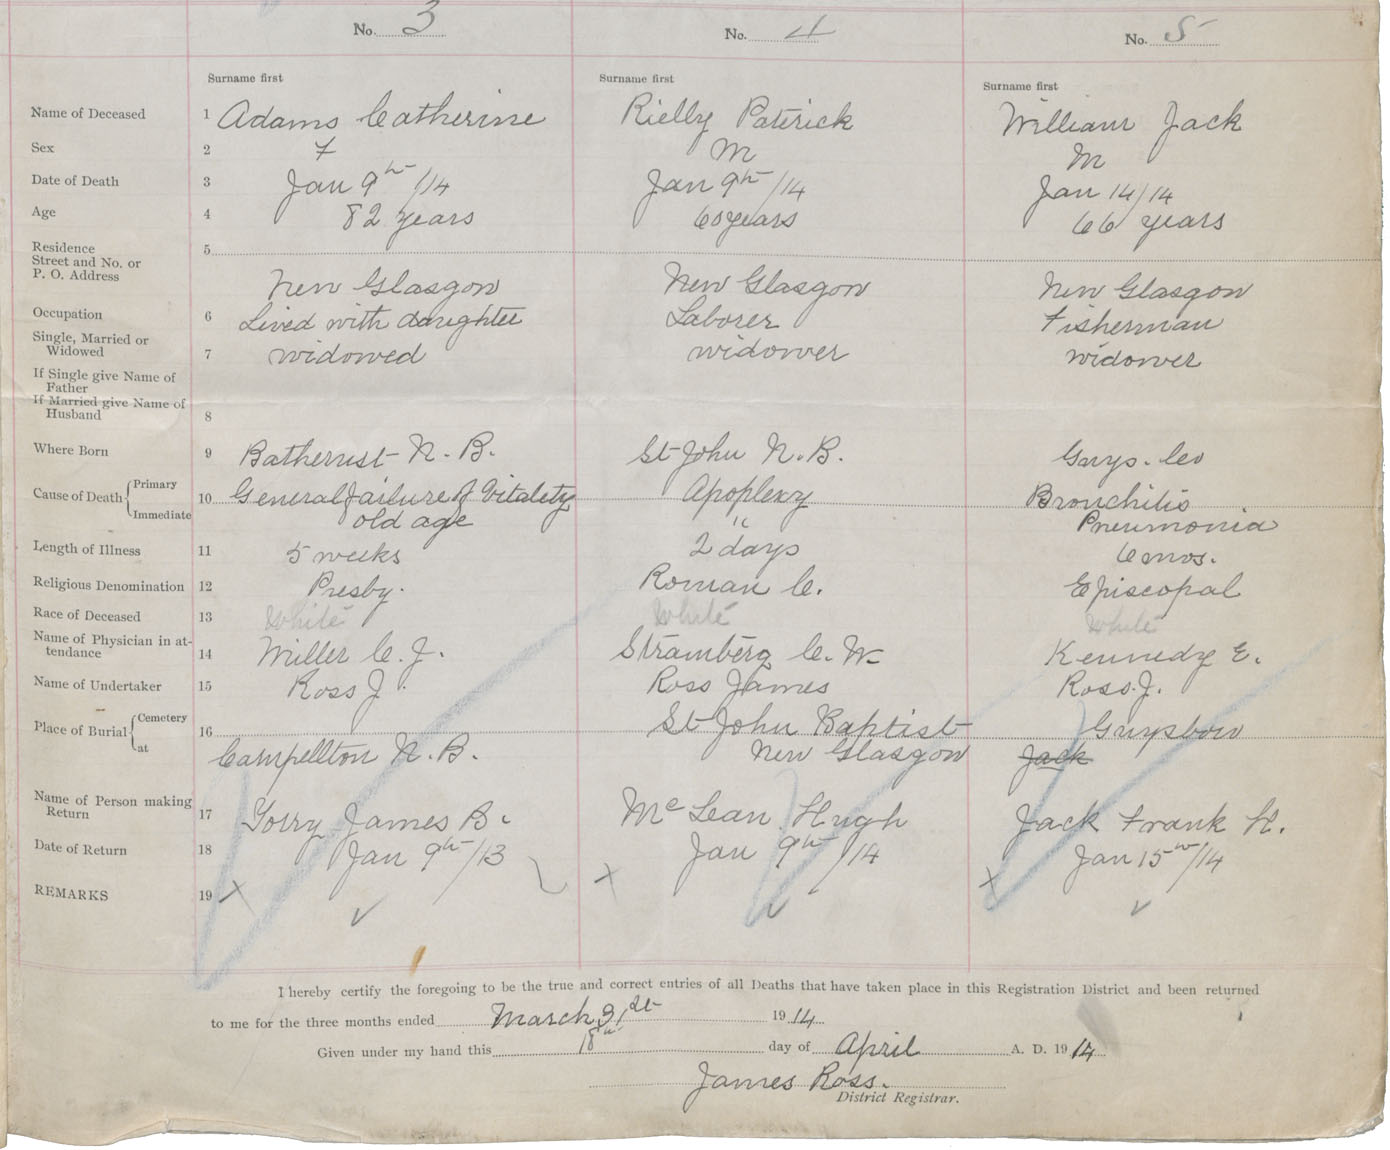 No. 3 No. 4 No. 5
Surname first Surname first Surname first
Name of Deceased 1 Adams Catherine Rielly Paterick William Jack
Sex 2 F M M
Date of Death 3 Jan 9th/14 Jan 9th/14 Jan 14/14
Age 4 82 years 60 years 66 years
Residence 5
Street and No. or
P. O. Address
New Glasgow New Glasgow New Glasgow
Occupation 6 Lived with daughter Laborer Fisherman
Single, Married or
Widowed 7 widowed widower widower
If Single give Name of
Father
If Married give Name of
Husband 8
Where Born 9 Batherust N. B. St John N. B. Guys. Co
Cause of Death { Primary
10 General failure of Vitality Apoplexy Bronchitis
Immediate old age " Pneumonia
Length of Illness 11 5 weeks 2 days 6 mos.
Religious Denomination 12 Presby. Roman C. Episcopal
Race of Deceased 13 White White White
Name of Physician in at-
tendance 14 Miller C. J. Stramberg C. W. Kennedy E.
Name of Undertaker 15 Ross J. Ross James Ross J.
Place of Burial { Cemetery 16 St John Baptist Guysboro
at Campellton N. B. New Glasgow Jack
Name of Person making
Return 17 Torry James B. McLean Hugh Jack Frank H.
Date of Return 18 Jan 9th/13 Jan 9th/14 Jan 15th/14
REMARKS 19 x x x
I hereby certify the foregoing to be the true and correct entries of all Deaths that have taken place in this Registration District and been returned
to me for the three months ended March 31st 1914
Given under my hand this 18th day of April A. D. 1914
James Ross.
District Registrar.